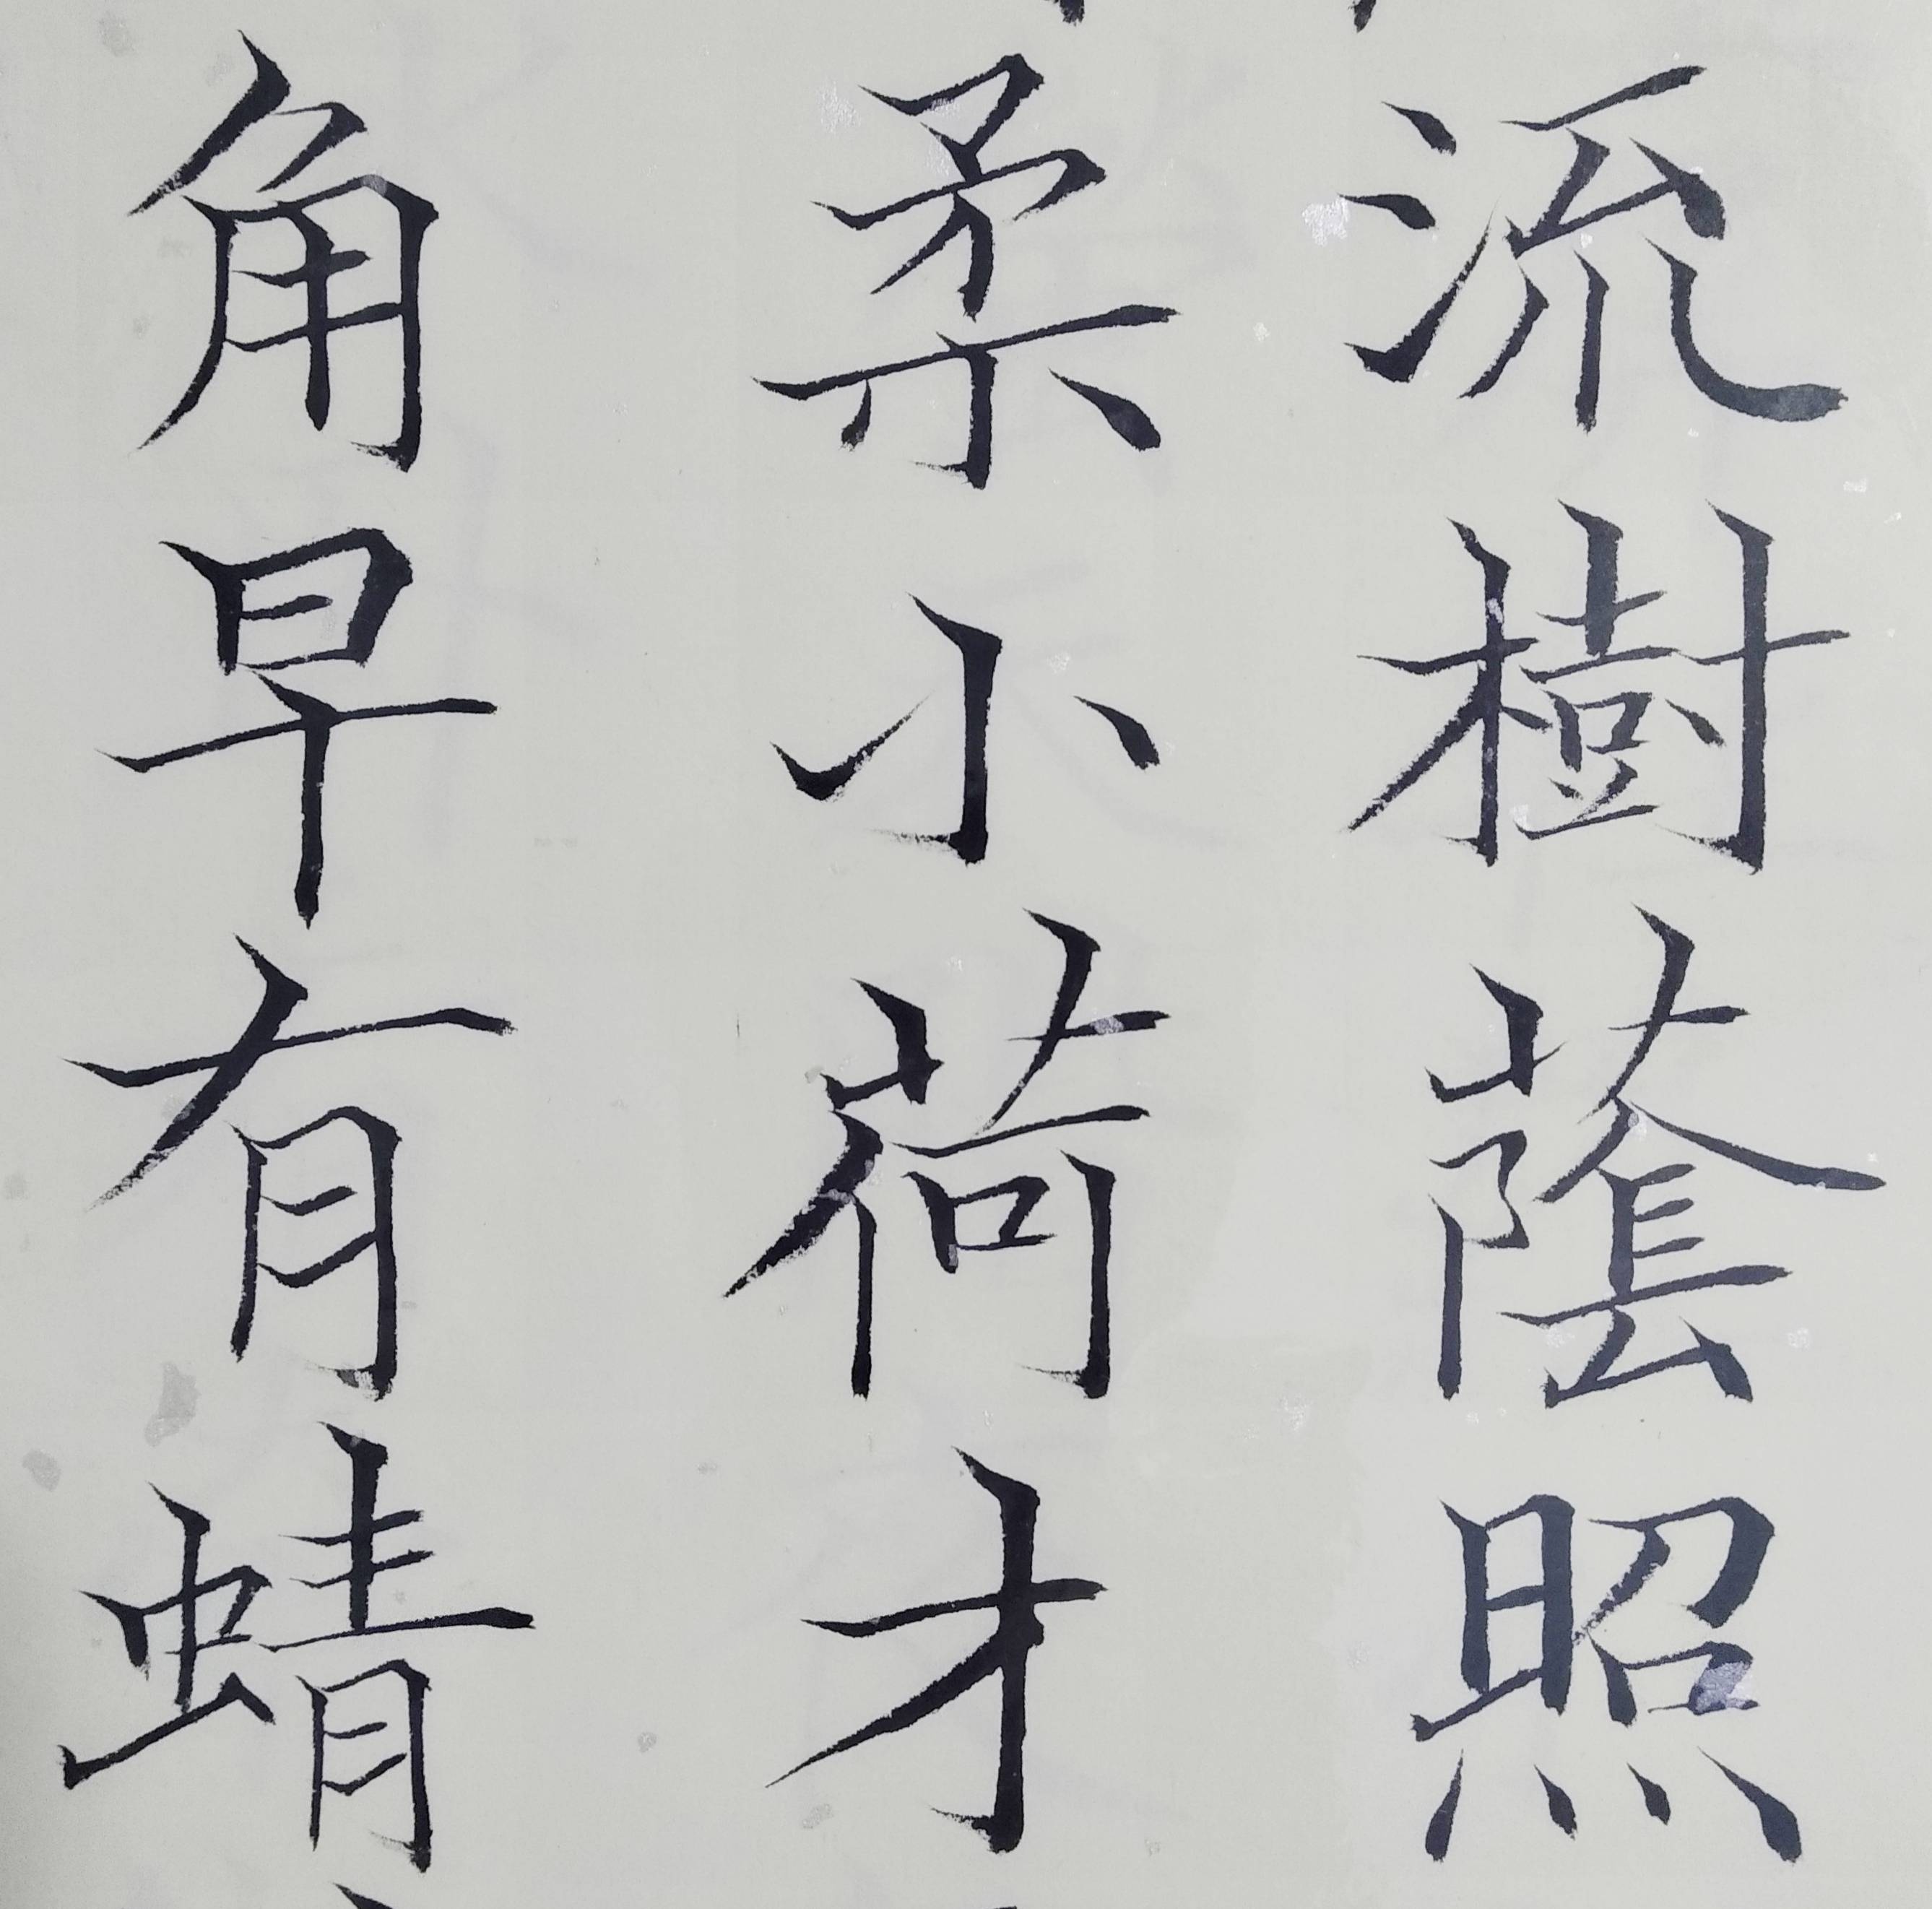 流樹蔭照
柔小荷才
角早有蜻